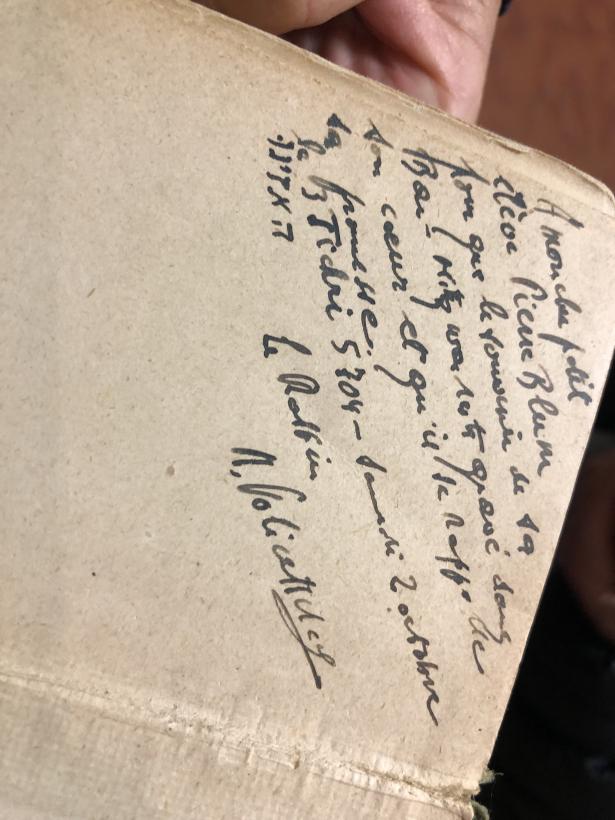 A mon cher petit
élève Pierre Blum
pour que le souvenir de sa
Bar-Mitzwa reste gravé dans
son cœur et qu'il se rappelle
sa promesse.
le 3 Tichri 5704 - samedi 2 octobre
Le Rabbin